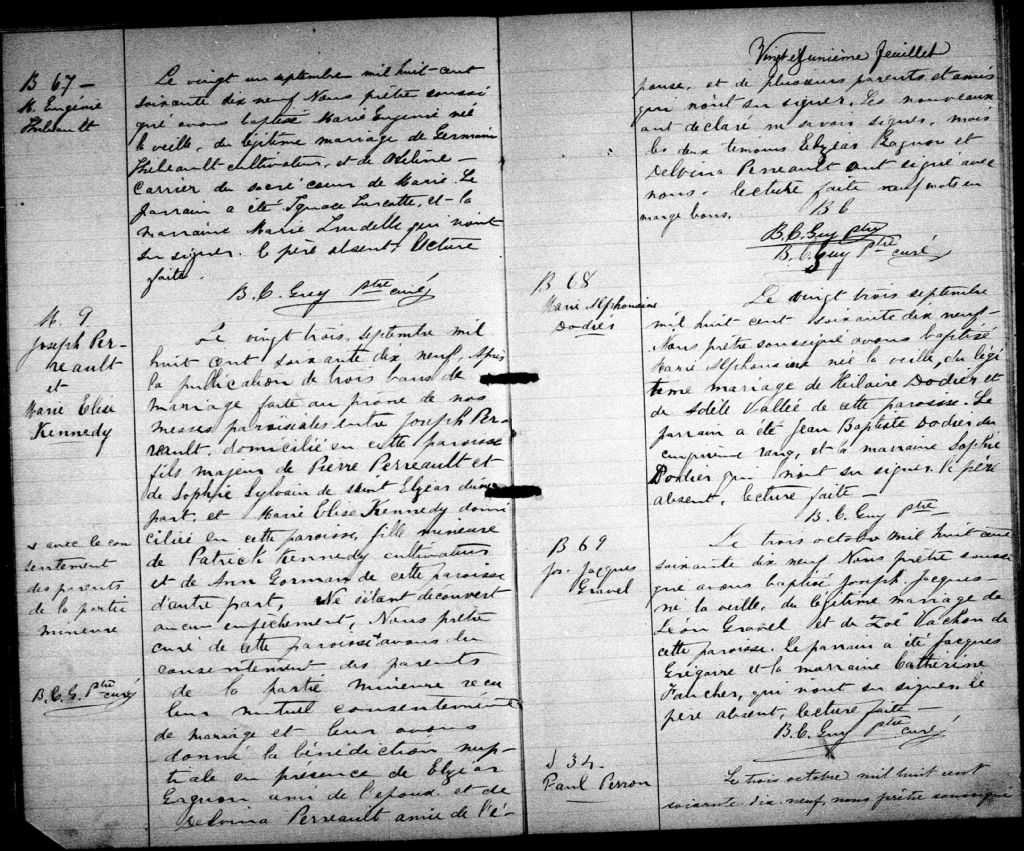 B 67 -
M. Eugenie
Thibault
Le vingt un septembre mil huit-cent
soixante dix neuf Nous prêtre soussi
gné avons baptisé Marie Eugenie née
la veille, du légitime mariage de Germain
Thibeault cultivateur, et de Hélène -
Carrier du sacré coeur de Marie. Le
parrain a été Ignace Turcotte, et la
marraine Marie qui n'ont
su signer. le père absent. Lecture
faite.
B. C. Guy Ptre curé
M. 9
Joseph Per-
reault
et
Marie Elise
Kennedy
Le vingt trois, septembre mil
huit cent soixante dix neuf, Après
la publication de trois bans de
mariage faite au prone de nos
messes paroissiales entre Joseph Per-
reault, domicilié en cette paroisse
fils majeur de Pierre Perreault et
de Sophie Sylvain de saint Elzéar d'une
part, et Marie Elise Kennedy domi
ciliée en cette paroisse, fille mineure
de Patrick Kennedy cultivateur
et de Ann Gorman de cette paroisse
d'autre part, Ne s'étant découvert
aucun empêchement, Nous prêtre
curé de cette paroisse avons du
consentement des parents
de la partie mineure recu
leur mutuel consentement
de mariage et leur avons
donné la bénédiction nup-
tiale en présence de Elzéar
Gagnon ami de l'époux et de
Delvina Perreault amie de l'é-
x avec le con
sentement
des parents
de la partie
mineure
B. C. G. Ptre curé
Vingt et unième feuillet
pouse, et de plusieurs parents et amis
qui n'ont su signer. Les nouveaux
ont declaré ne savoir signer, mais
les deux temoins Elzéar Gagnon et
Delvina Perreault ont signé avec
nous. lecture faite neuf mots en
marge bons. B C
B. C. Guy ptre
B. C. Guy Ptre curé
B 68
Marie Alphonsine
Dodier
Le vingt trois septembre
mil huit cent soixante dix neuf-
Nous prêtre soussigné avons baptisé
Marie Alphonsine née la veille, du légi
time mariage de Hilaire Dodier et
de Adèle Vallée de cette paroisse. Le
parrain a été Jean Baptiste Dodier du
cinquième rang, et la marraine Sophie
Dodier qui n'ont su signer. le père
absent, lecture faite -
B. C. Guy Ptre
B 69
Jos. Jacques
Gravel
Le trois octobre mil huit cent
soixante dix neuf Nous prêtre soussi
gné avons baptisé Joseph Jacques-
né la veille, du légitime mariage de
Léon Gravel et de Zoé Vachon de
cette paroisse. Le parrain a été Jacques
Grégoire et la marraine Catherine
Faucher, qui n'ont su signer. le
père absent, lecture faite -
B. C. Guy Ptre curé
S 34-
Paul Perron
Le trois octobre mil huit cent
soixante dix neuf, nous prêtre soussigné